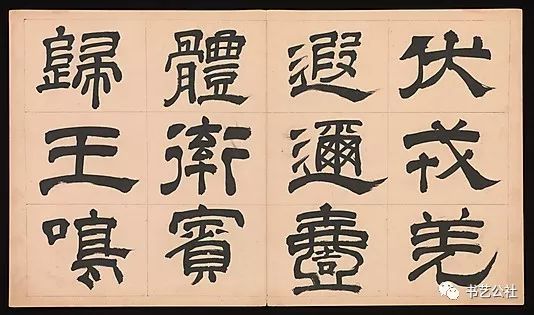 伏戎羌
遐邇壹
體率賓
歸王鳴
书艺公社